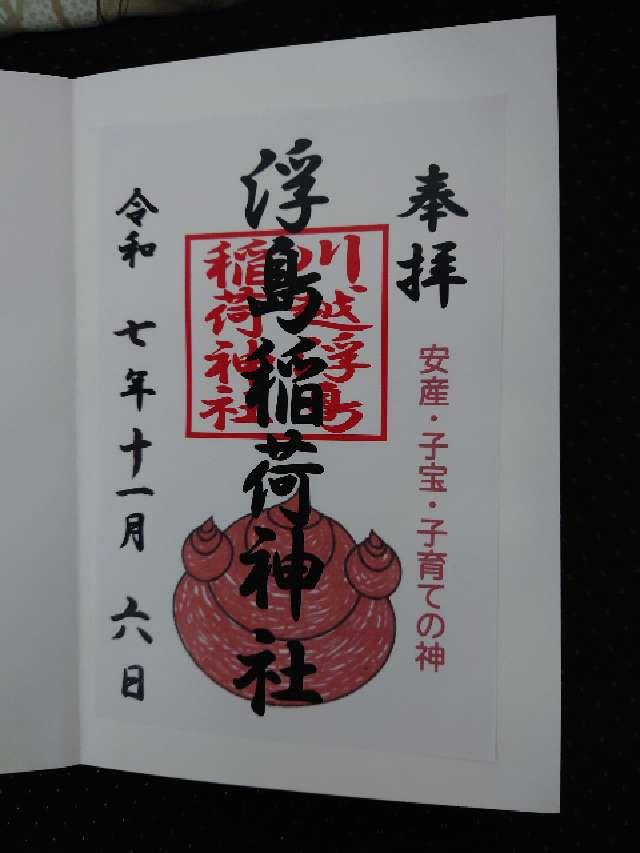 奉拝
安産・子宝・子育ての神
浮島稲荷神社
川越浮島
稲荷神社
令和 七年十一月 六日